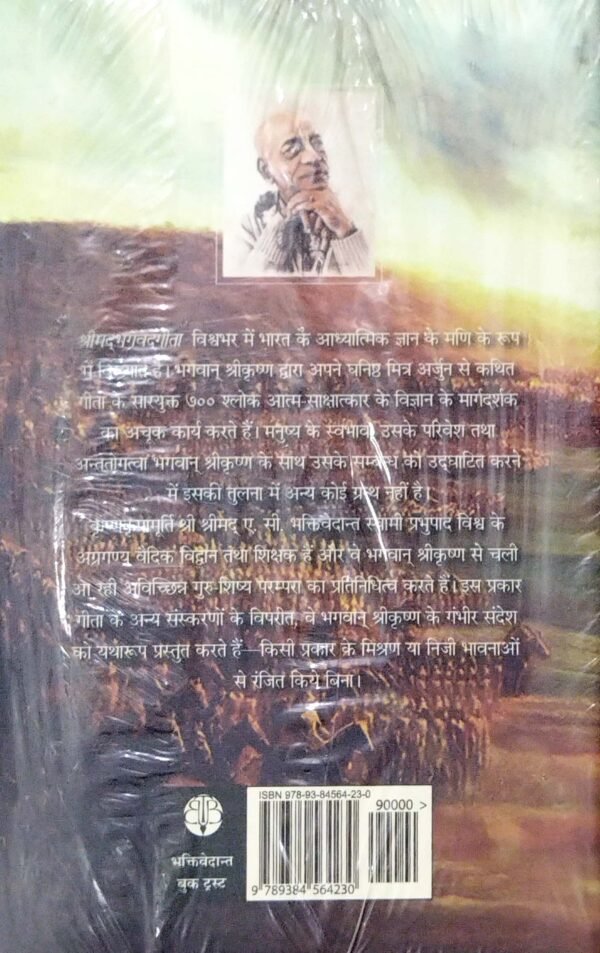 श्रीमद्भगवद्गीता विश्वभर में भारत के आध्यात्मिक ज्ञान के मणि के रूप
में विख्यात है। भगवान् श्रीकृष्ण द्वारा अपने घनिष्ठ मित्र अर्जुन से कथित
गीता के सारयुक्त ७०० श्लोक आत्म-साक्षात्कार के विज्ञान के मार्गदर्शक
का अचूक कार्य करते हैं। मनुष्य के स्वभाव, उसके परिवेश तथा
अन्ततोगत्वा भगवान् श्रीकृष्ण के साथ उसके सम्बन्ध को उद्घाटित करने
में इसकी तुलना में अन्य कोई ग्रंथ नहीं है।
कृष्णकृपामूर्ति श्री श्रीमद् ए. सी. भक्तिवेदान्त स्वामी प्रभुपाद विश्व के
अग्रगण्य वैदिक विद्वान तथा शिक्षक हैं और वे भगवान् श्रीकृष्ण से चली
आ रही अविच्छिन्न गुरु-शिष्य परम्परा का प्रतिनिधित्व करते हैं। इस प्रकार
गीता के अन्य संस्करणों के विपरीत, वे भगवान् श्रीकृष्ण के गंभीर संदेश
को यथारूप प्रस्तुत करते हैं—किसी प्रकार के मिश्रण या निजी भावनाओं
से रंजित किये बिना।
भक्तिवेदान्त
बुक ट्रस्ट
ISBN 978-93-84564-23-0
90000 >
9 789384 564230